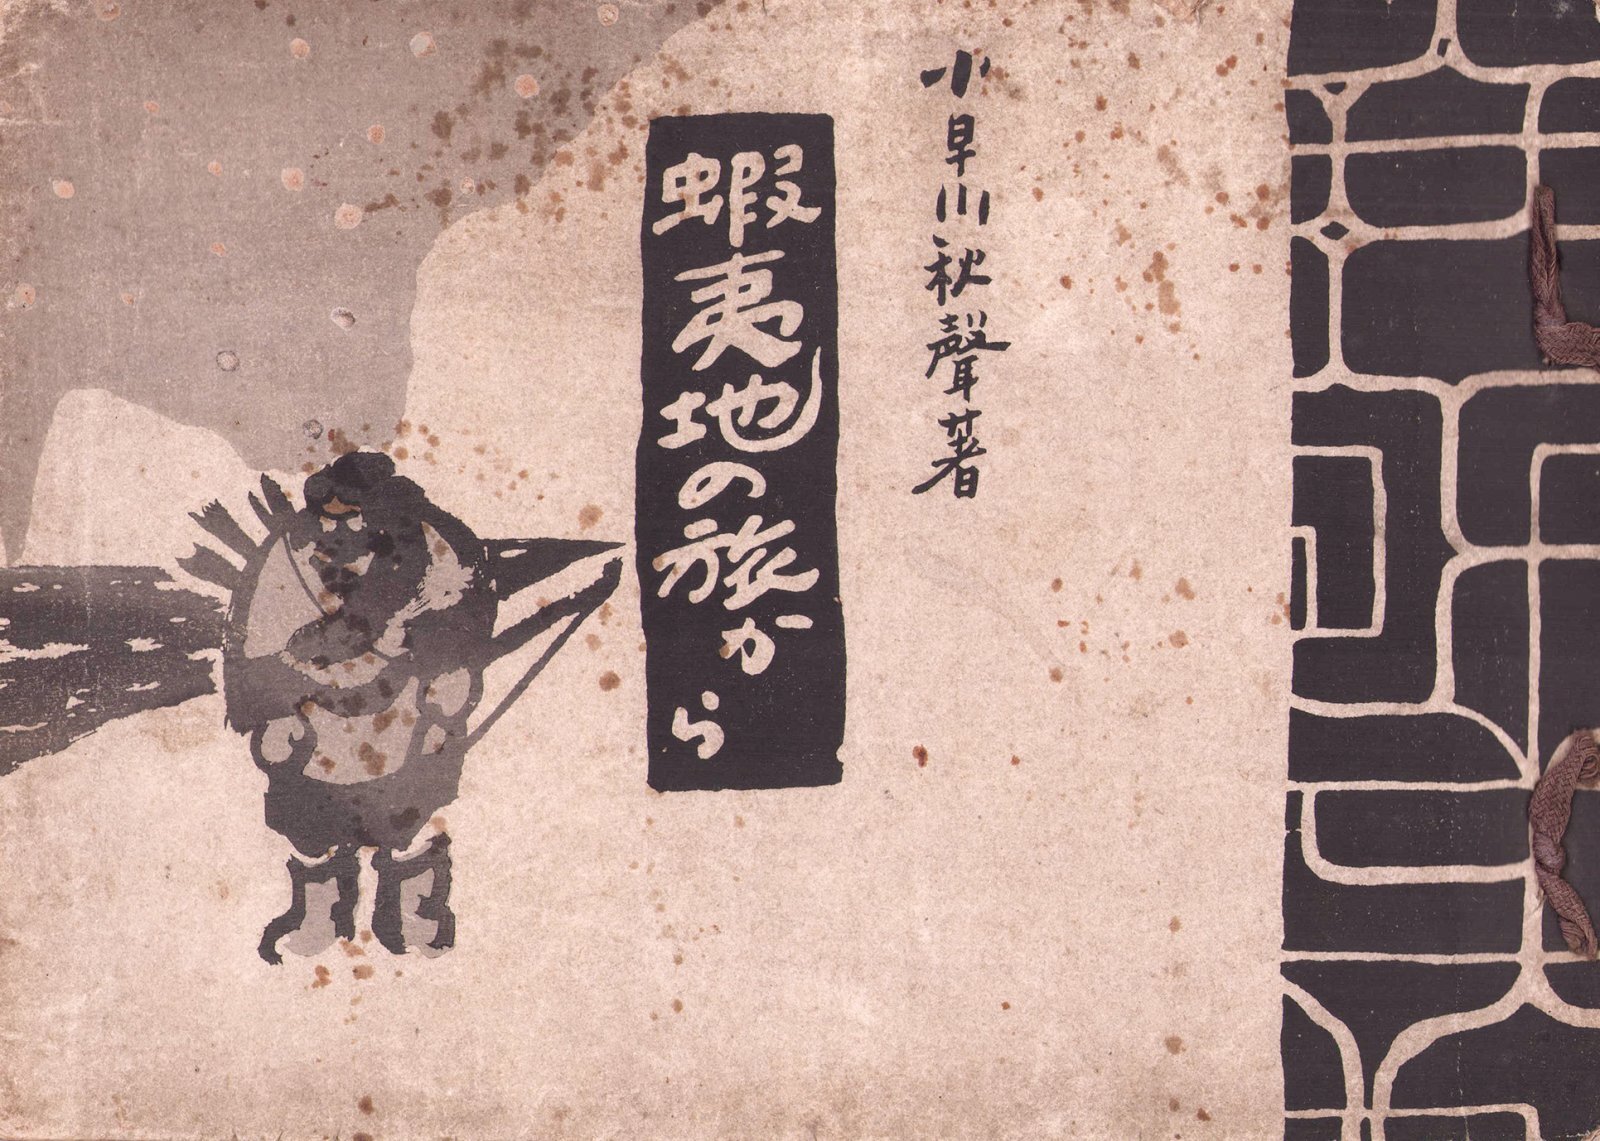 小早川秋聲著
蝦夷地の旅から